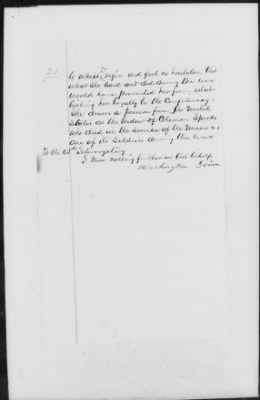 to which I refer and feel no hesitation that
what she said and did during the war
would have prevented her from establishing
her loyalty to the Confederacy.
She draws a pension from the United
States as the widow of Coleman
who died in the service of the Union as
one of its Soldiers during the war
To the 60th Interrogatory
I know nothing further on this behalf
Washington